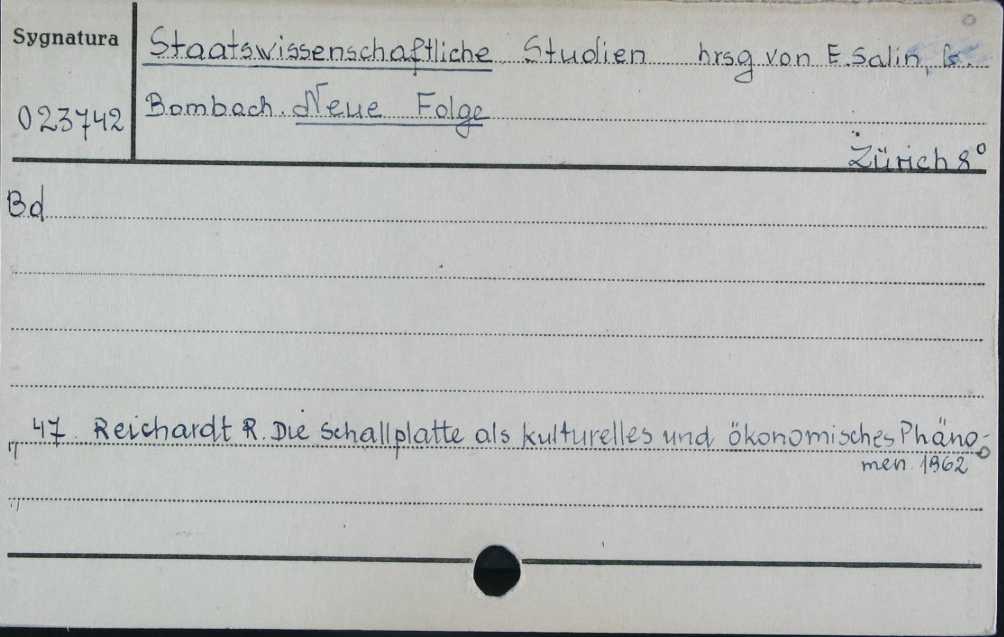 Sygnatura
023742
Staatswissenschaftliche Studien hrsg von E. Salin, G.
Bombach. Neue Folge
Zürich 8°
Bd
" 47. Reichardt R. Die Schallplatte als kulturelles und ökonomisches Phäno-
men 1962
"